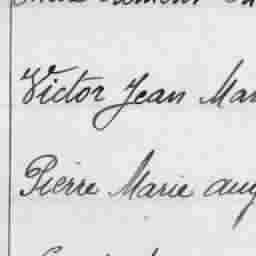 Victor Jean Mar
Pierre Marie aug